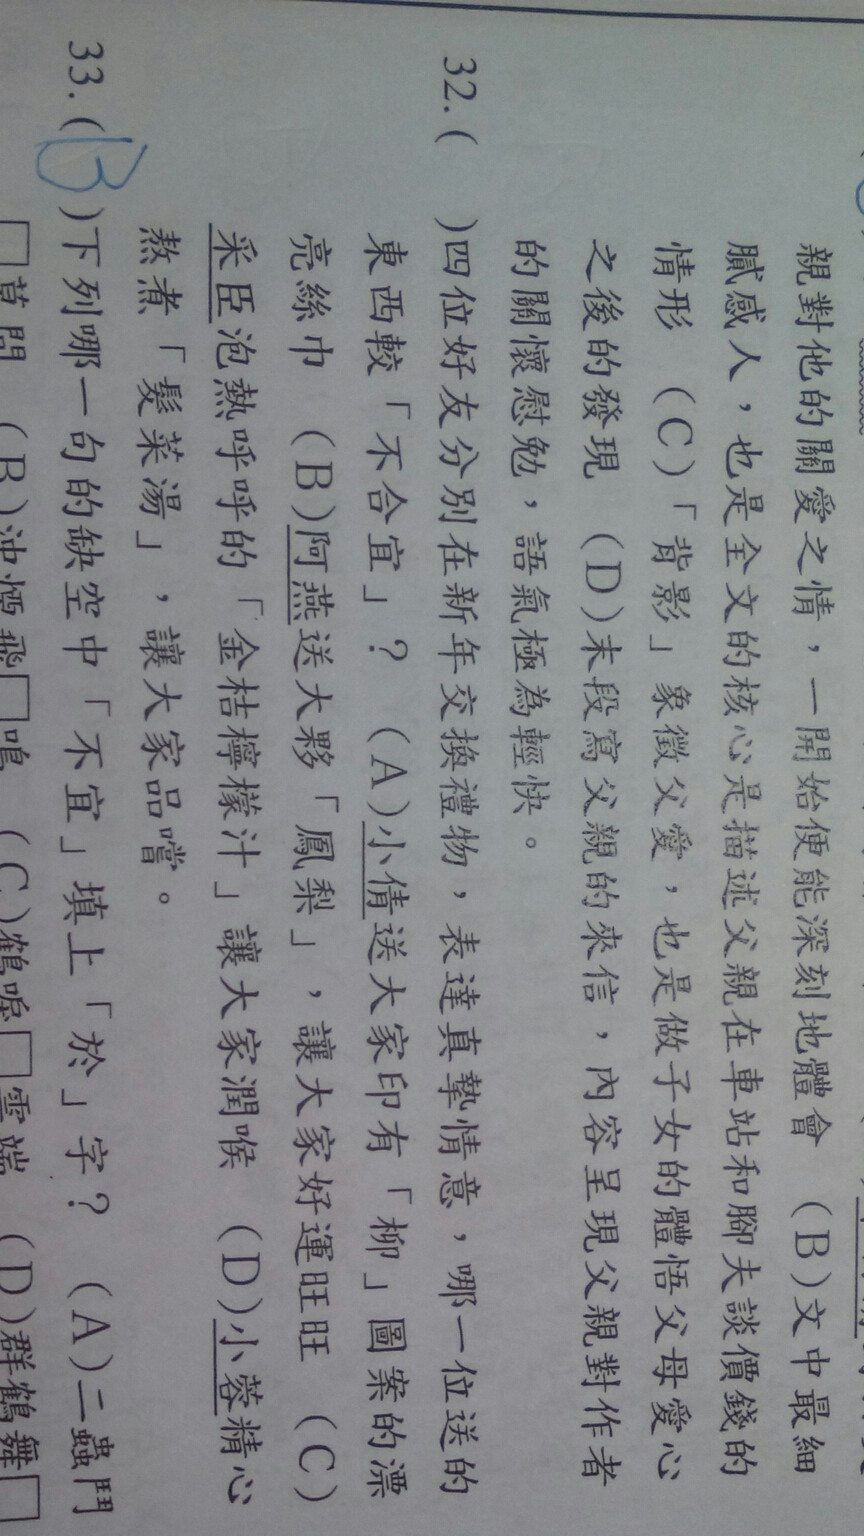 親對他的關愛之情，一開始便能深刻地體會 (B)文中最細
膩感人，也是全文的核心是描述父親在車站和腳夫談價錢的
情形 (C)「背影」象徵父愛，也是做子女的體悟父母愛心
之後的發現 (D)末段寫父親的來信，內容呈現父親對作者
的關懷慰勉，語氣極為輕快。
32.( )四位好友分別在新年交換禮物，表達真摯情意，哪一位送的
東西較「不合宜」？ (A)小倩送大家印有「柳」圖案的漂
亮絲巾 (B)阿燕送大夥「鳳梨」，讓大家好運旺旺 (C)
采臣泡熱呼呼的「金桔檸檬汁」讓大家潤喉 (D)小蓉精心
熬煮「髮菜湯」，讓大家品嚐。
33.(B)下列哪一句的缺空中「不宜」填上「於」字？ (A)二蟲鬥
□草間 (B)沖煙飛□鳴 (C)鶴唳□雲端 (D)群鶴舞□